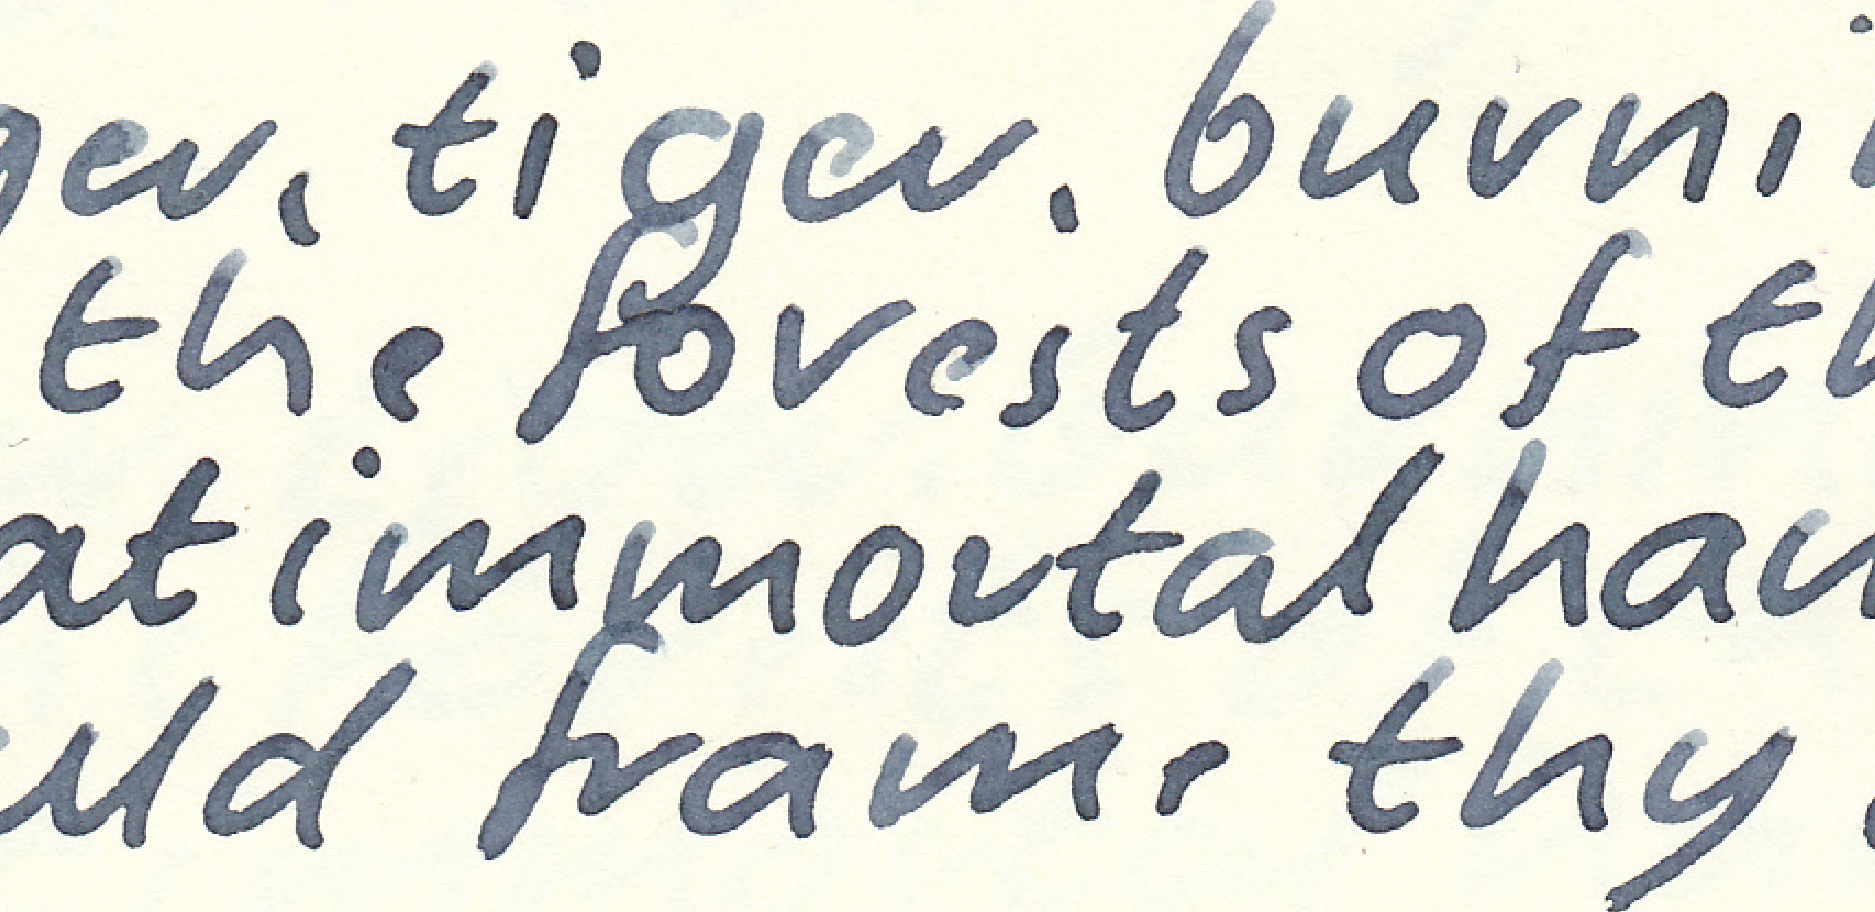 ger, tiger, burni
the forests of th
at immortal han
uld frame thy